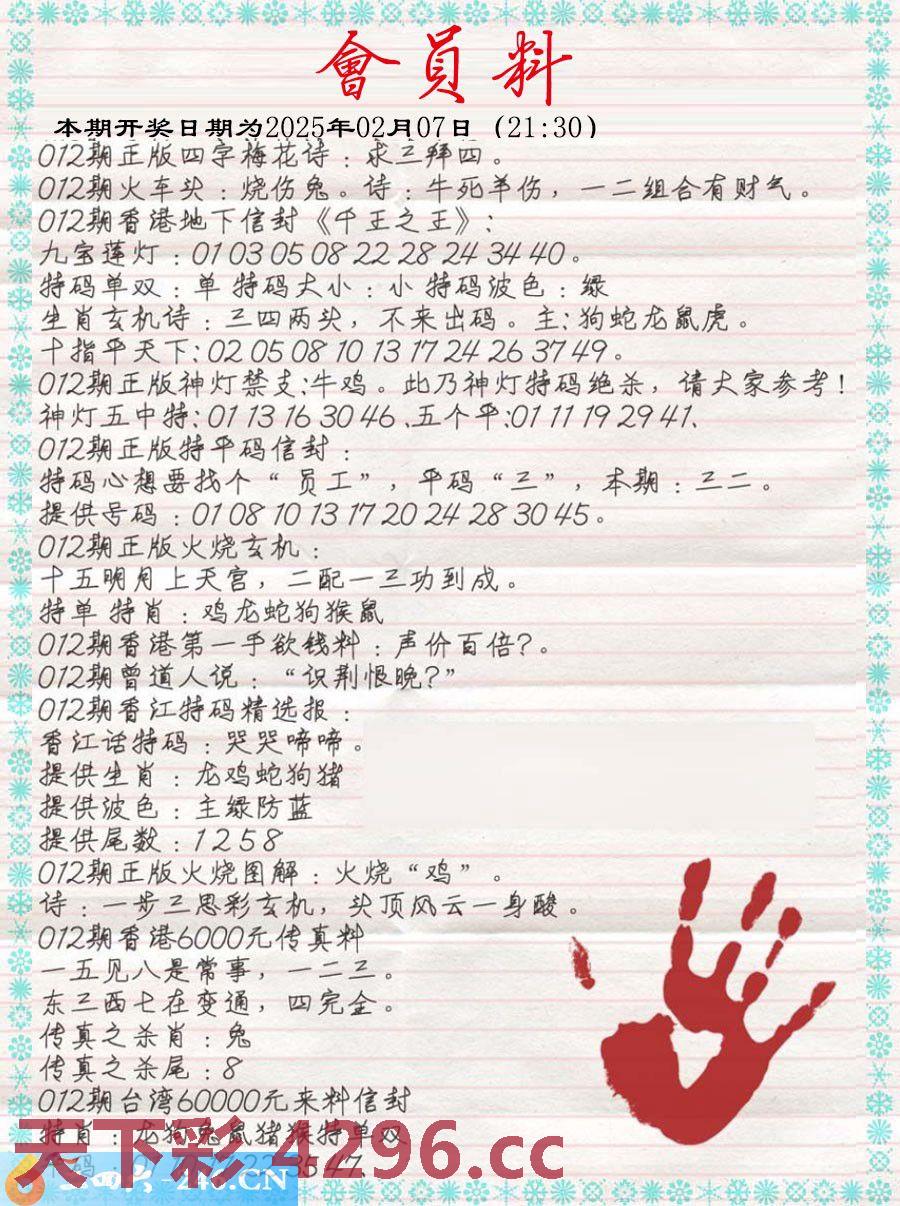 會員料
本期开奖日期为2025年02月07日（21:30）
012期正版四字梅花诗：求三拜四。
012期火车头：烧伤兔。诗：牛死羊伤，一二组合有财气。
012期香港地下信封《千王之王》：
九宝莲灯：01 03 05 08 22 28 24 34 40。
特码单双：单 特码大小：小 特码波色：绿
生肖玄机诗：三四两头，不来出码。主：狗蛇龙鼠虎。
十指平天下：02 05 08 10 13 17 24 26 37 49。
012期正版神灯禁支：牛鸡。此乃神灯特码绝杀，请大家参考！
神灯五中特：01 13 16 30 46 .五个平：01 11 19 29 41.
012期正版特平码信封：
特码心想要找个“员工”，平码“三”，本期：三二。
提供号码：01 08 10 13 17 20 24 28 30 45。
012期正版火烧玄机：
十五明月上天宫，二配一三功到成。
特单 特肖：鸡龙蛇狗猴鼠
012期香港第一手欲钱料：声价百倍？。
012期曾道人说：“识荆恨晚？”
012期香江特码精选报：
香江话特码：哭哭啼啼。
提供生肖：龙鸡蛇狗猪
提供波色：主绿防蓝
提供尾数：1 2 5 8
012期正版火烧图解：火烧“鸡”。
诗：一步三思彩玄机，头顶风云一身酸。
012期香港6000元传真料
一五见八是常事，一二三。
东三西七在变通，四完金。
传真之杀肖：兔
传真之杀尾：8
012期台湾60000元来料信封
特肖：龙狗兔鼠猪猴特单双
天下彩4296.cc
246.CN